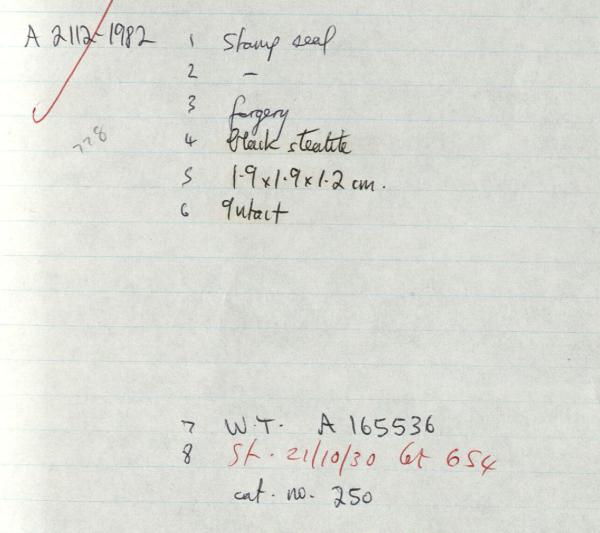 A 2112-1982 1 Stamp seal
2 –
3 forgery
778
4 black steatite
5 1.9 x 1.9 x 1.2 cm.
6 Intact
7 W.T. A 165536
8 St. 21/10/30 Lot 654
cat. no. 250